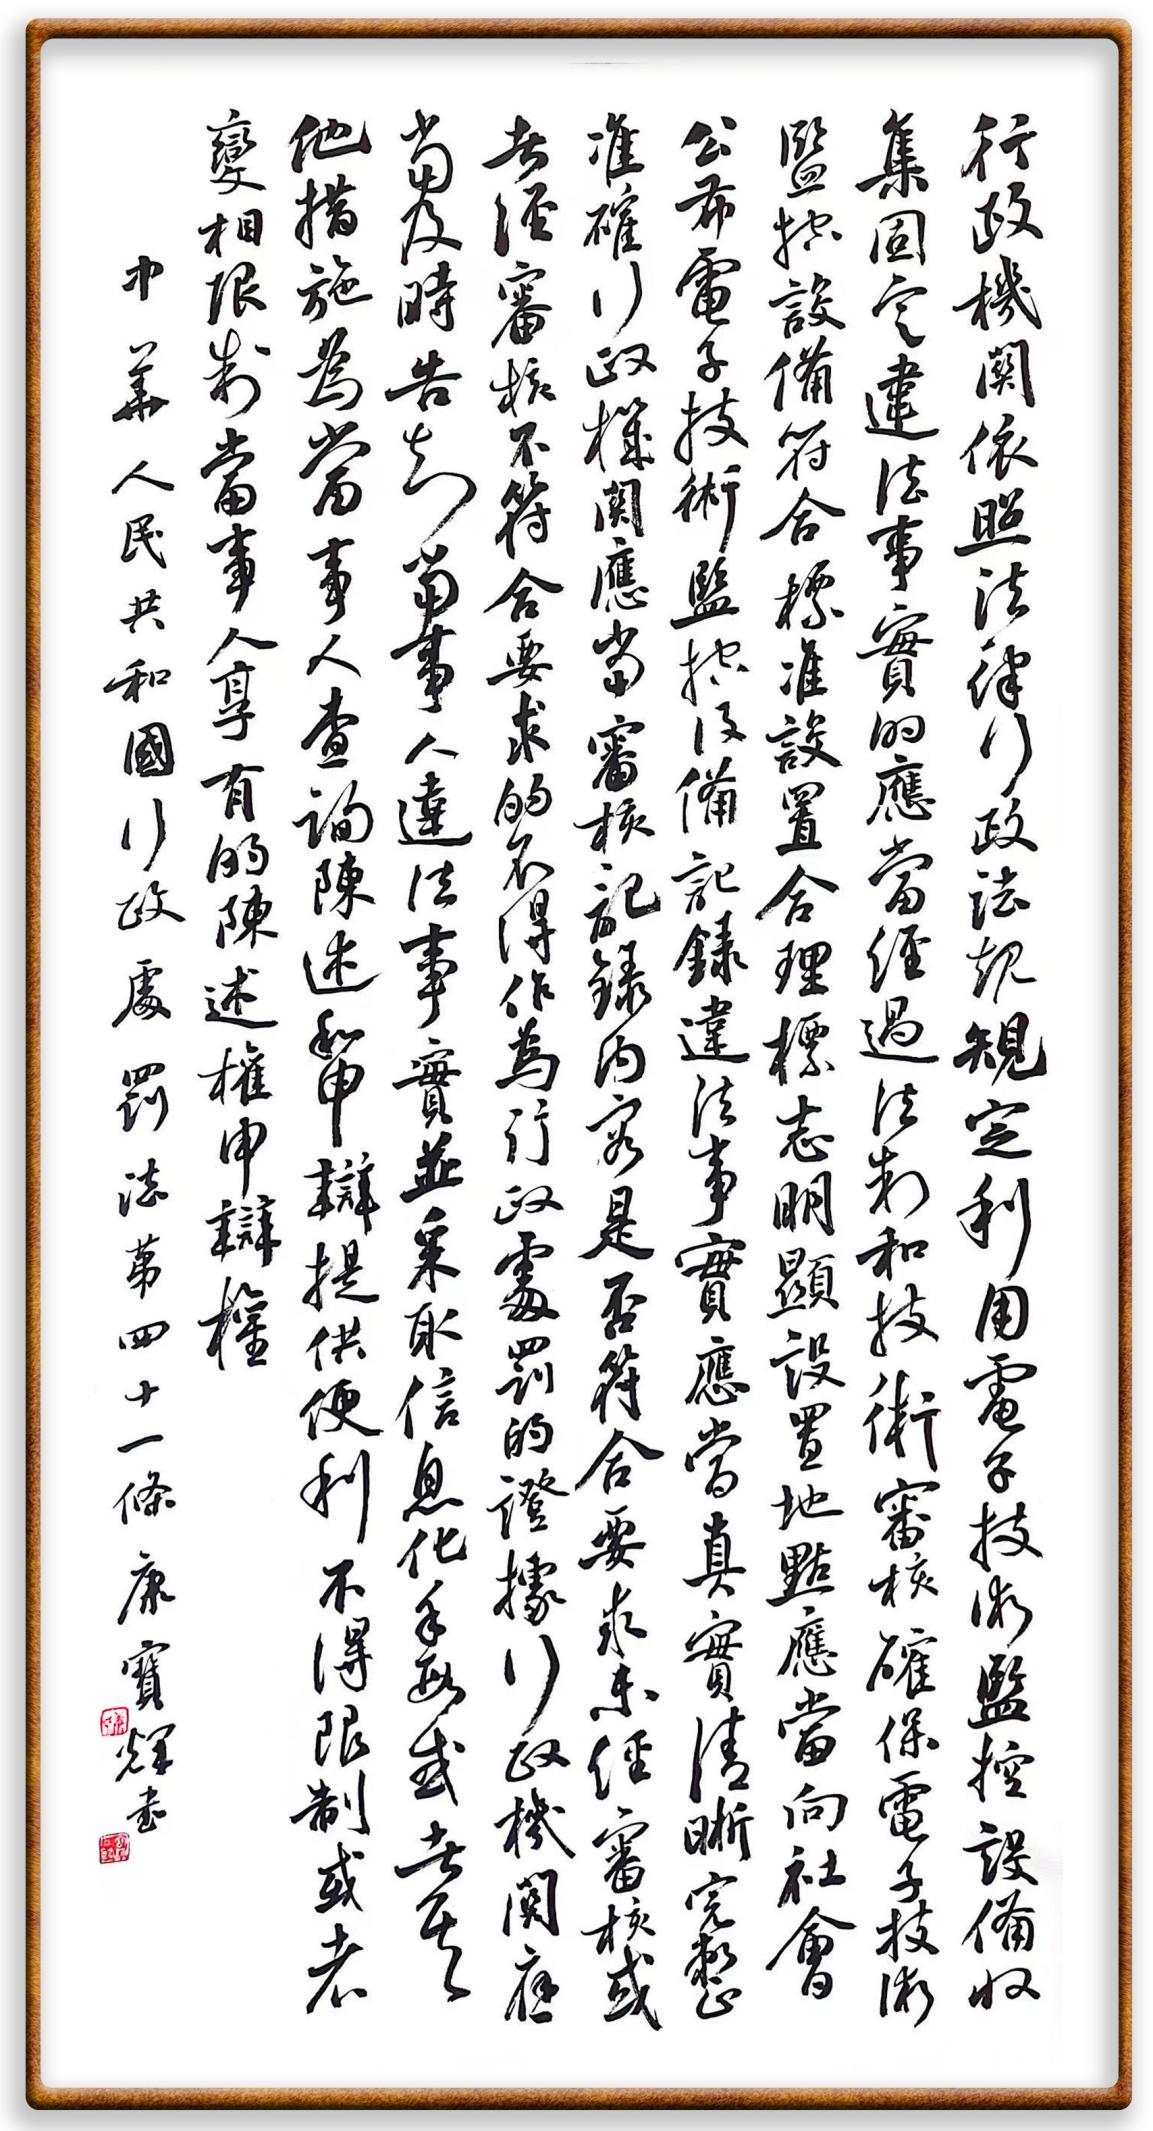 行政機関依照法律行政法規規定利用電子技術監控設備收
集固定違法事實的應當經過法制和技術審核確保電子技術
監控設備符合標准設置合理標志明顯設置地點應當向社會
公布電子技術監控設備記錄違法事實應當真實清晰完整
准確行政機関應當審核記錄內容是否符合要求未經審核或
者經審核不符合要求的不得作為行政處罰的證據行政機関應
當及時告知當事人違法事實並采取信息化手段或者其
他措施為當事人查詢陳述和申辯提供便利不得限制或者
變相限制當事人享有的陳述權申辯權
中華人民共和國行政處罰法第四十一條康寶輝書